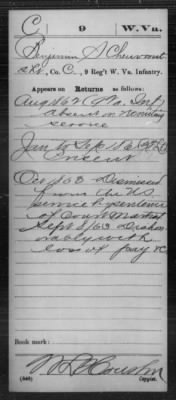 C 9 W. Va.
Benjamin S Cheuvront
, Co. C, 9 Reg't W. Va. Infantry.
Appears on Returns as follows:
Aug 1862 (9 Va. Inf)
absent on recruiting
service
Jan to Sep 1863
Present
Oct 1863 Dismissed
from the US
service by sentence
of Court Martial
Sept 8/63 Dishon
orably with
loss of pay &c
Book mark:
(546) Copyist.